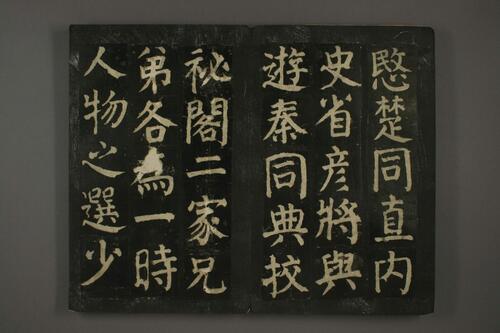 愍楚同直内
史省彦將與
遊秦同典校
祕閣二家兄
弟各為一時
人物之選少